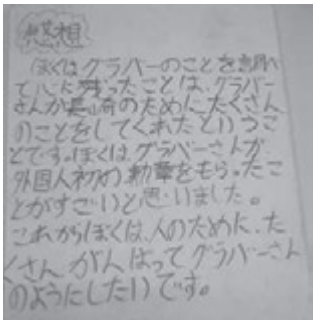 感想
ぼくはグラバーのことを調べ
て心に残ったことは、グラバー
さんが長崎のためにたくさん
のことをしてくれたというこ
とです。ぼくは、グラバーさんが
外国人初の勲章をもらったこ
とがすごいと思いました。
これからぼくは、人のために、た
くさんがんばってグラバーさん
のようにしたいです。